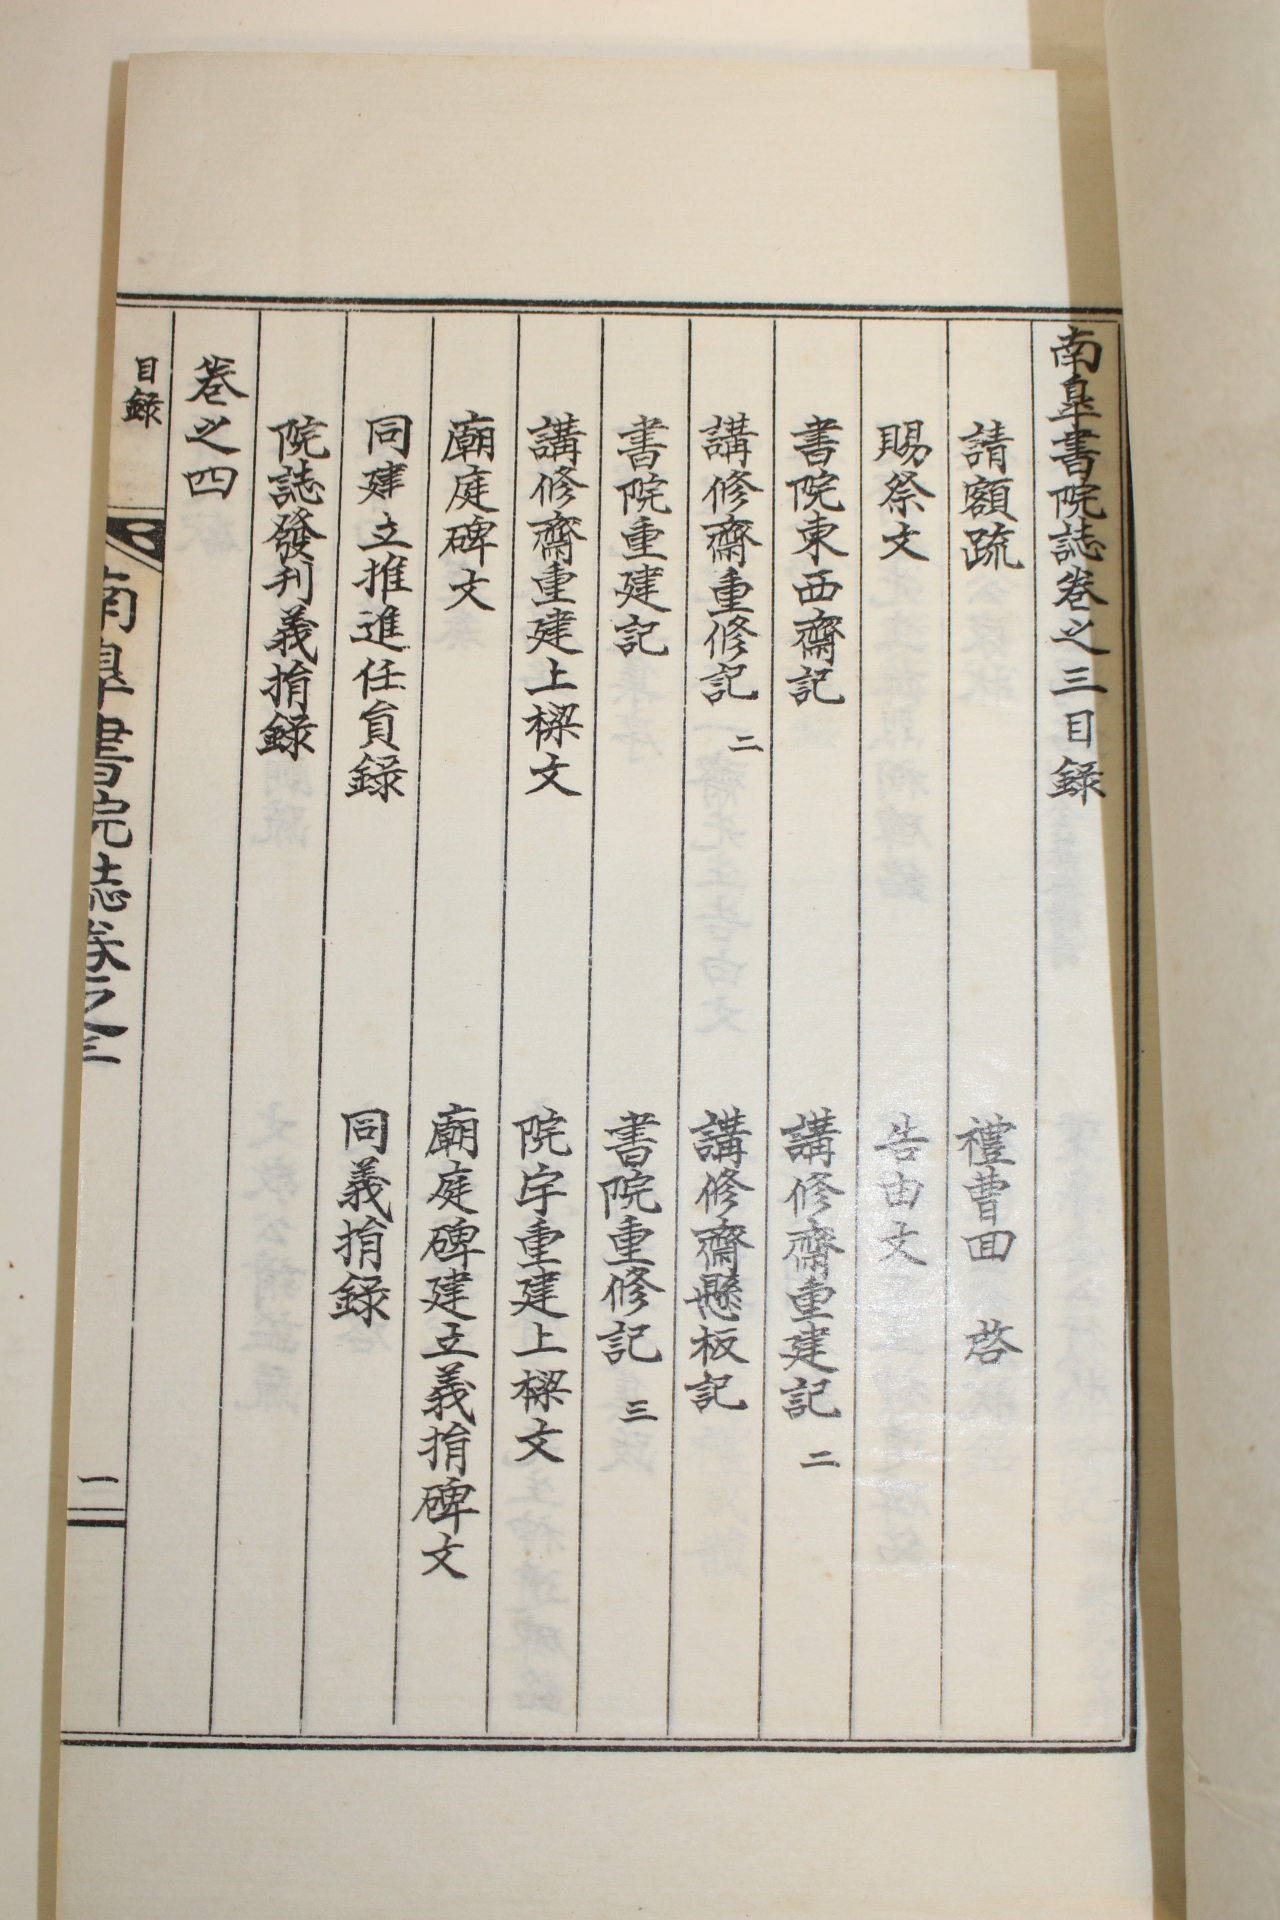 南皐書院誌卷之三目録
請額疏　禮曹回　啓
賜祭文　告由文
書院東西齋記　講修齋重建記 二
講修齋重修記 二　講修齋懸板記
書院重建記　書院重修記 三
講修齋重建上樑文　院宇重建上樑文
廟庭碑文　廟庭碑建立義捐碑文
同建立推進任員録　同義捐録
院誌發刊義捐録
卷之四
目録
南皐書院誌卷之三
一